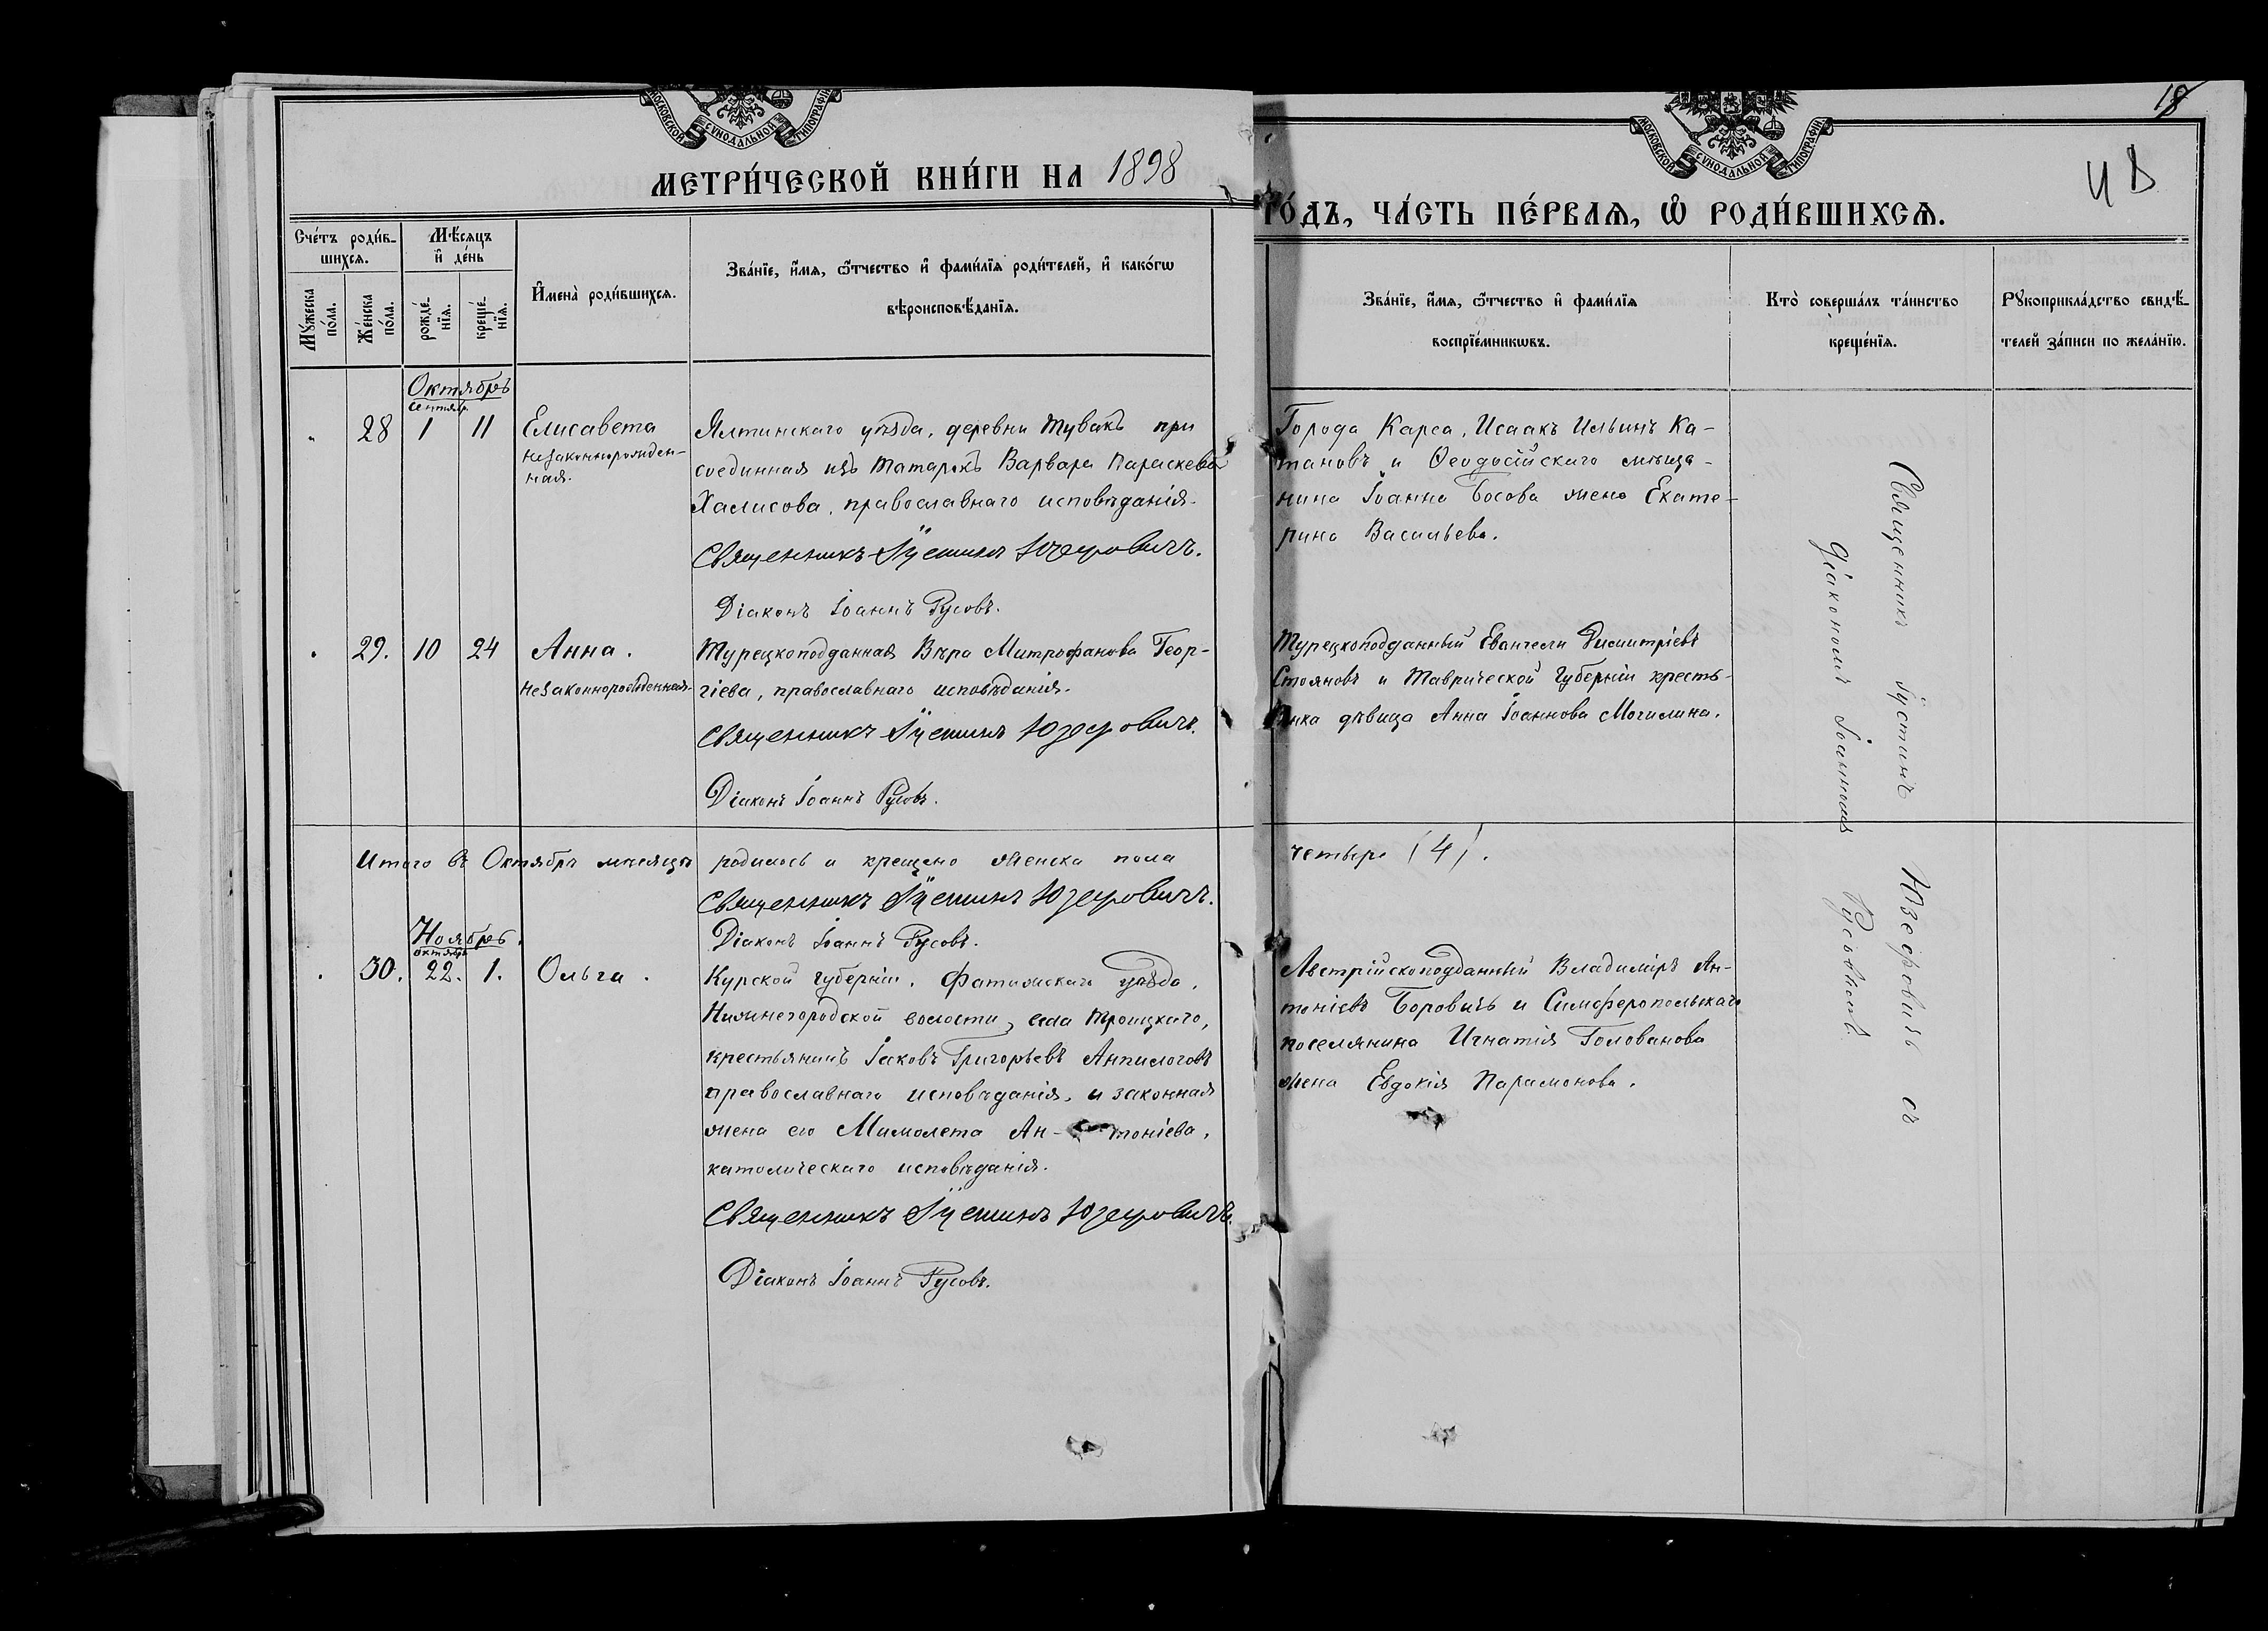 МОСКОВСКОЙ СУНОДАЛЬНОЙ ТИПОГРАФІИ
МОСКОВСКОЙ СУНОДАЛЬНОЙ ТИПОГРАФІИ
18
МЕТРИ́ЧЕСКОЙ КНИ́ГИ НА 1898
ГО́ДЪ, ЧА́СТЬ ПЕ́РВАЯ, Ѡ҆ РОДИ́ВШИХСЯ.
Сче́тъ роди́в-
шихся.
Мꙋ́жеска по́ла.
Же́нска по́ла.
Мѣ́сяцъ
и҆ де́нь
рожде́-
нїя.
креще́-
нїя.
И҆мена̀ роди́вшихся.
Зва́нїе, и҆́мя, ѻ҆́тчество и҆ фами́лїя роди́телей, и҆ како́гѡ
вѣроисповѣ́данїя.
Зва́нїе, и҆́мя, ѻ҆́тчество и҆ фами́лїя
воспрїе́мникѡвъ.
Кто̀ соверша́лъ та́инство
креще́нїя.
Рꙋкоприкла́дство свидѣ́-
телей за́писи по жела́нїю.
Октябрь
сентябр.
28 1 11 Елисавета
незаконнорожден-
ная.
Ялтинскаго уѣзда, деревни Тувакъ при
соединная изъ татарокъ Варвара Параскева
Халисова, православнаго исповѣданія.
Священникъ Іустинъ Юзефовичъ.
Діаконъ Іоаннъ Русовъ.
Города Карса, Исаакъ Ильинъ Ка-
тановъ и Ѳеодосійскаго мѣща-
нина Іоанна Босова жена Екате-
рина Васильева.
29. 10 24 Анна.
незаконнорожденная.
Турецкоподданная Вѣра Митрофанова Геор-
гіева, православнаго исповѣданія.
Священникъ Іустинъ Юзефовичъ.
Діаконъ Іоаннъ Русовъ.
Турецкоподданный Евангели Димитріевъ
Стояновъ и Таврической губерніи кресть-
янка дѣвица Анна Іоаннова Могилина.
Итого въ Октябрѣ мѣсяцѣ родилось и крещено женска пола четыре (4).
Священникъ Іустинъ Юзефовичъ.
Діаконъ Іоаннъ Русовъ.
Ноябрь.
октябрь
30. 22. 1. Ольга.
Курской губерніи, Фатижскаго уѣзда,
Нижнегородской волости, села Троицкаго,
крестьянинъ Іаковъ Григорьевъ Анпилоговъ
православнаго исповѣданія, и законная
жена его Мимолета Ан-тоніева,
католическаго исповѣданія.
Священникъ Іустинъ Юзефовичъ.
Діаконъ Іоаннъ Русовъ.
Австрійскоподданный Владиміръ Ан-
тоніевъ Боровичъ и Симферопольскаго
поселянина Игнатія Голованова
жена Евдокія Парамонова.
Священникъ Іустинъ Юзефовичъ съ
діакономъ Іоанномъ Русовымъ.